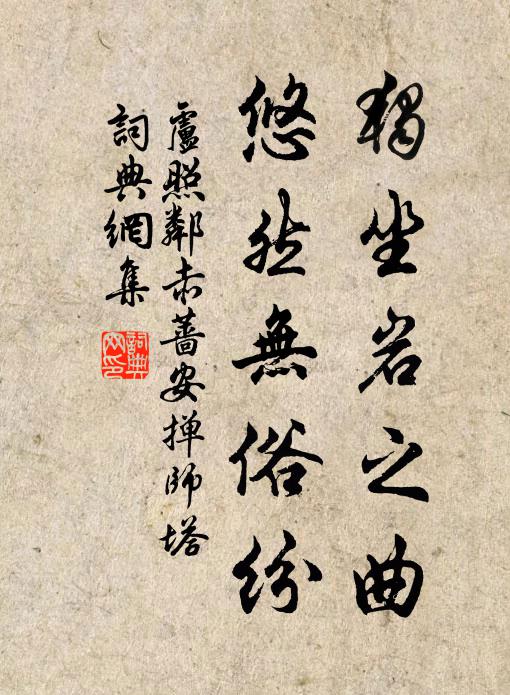 獨坐岩之曲
悠然無俗紛
盧照鄰赤薔安掸師塔
詞典網集
詞典網印